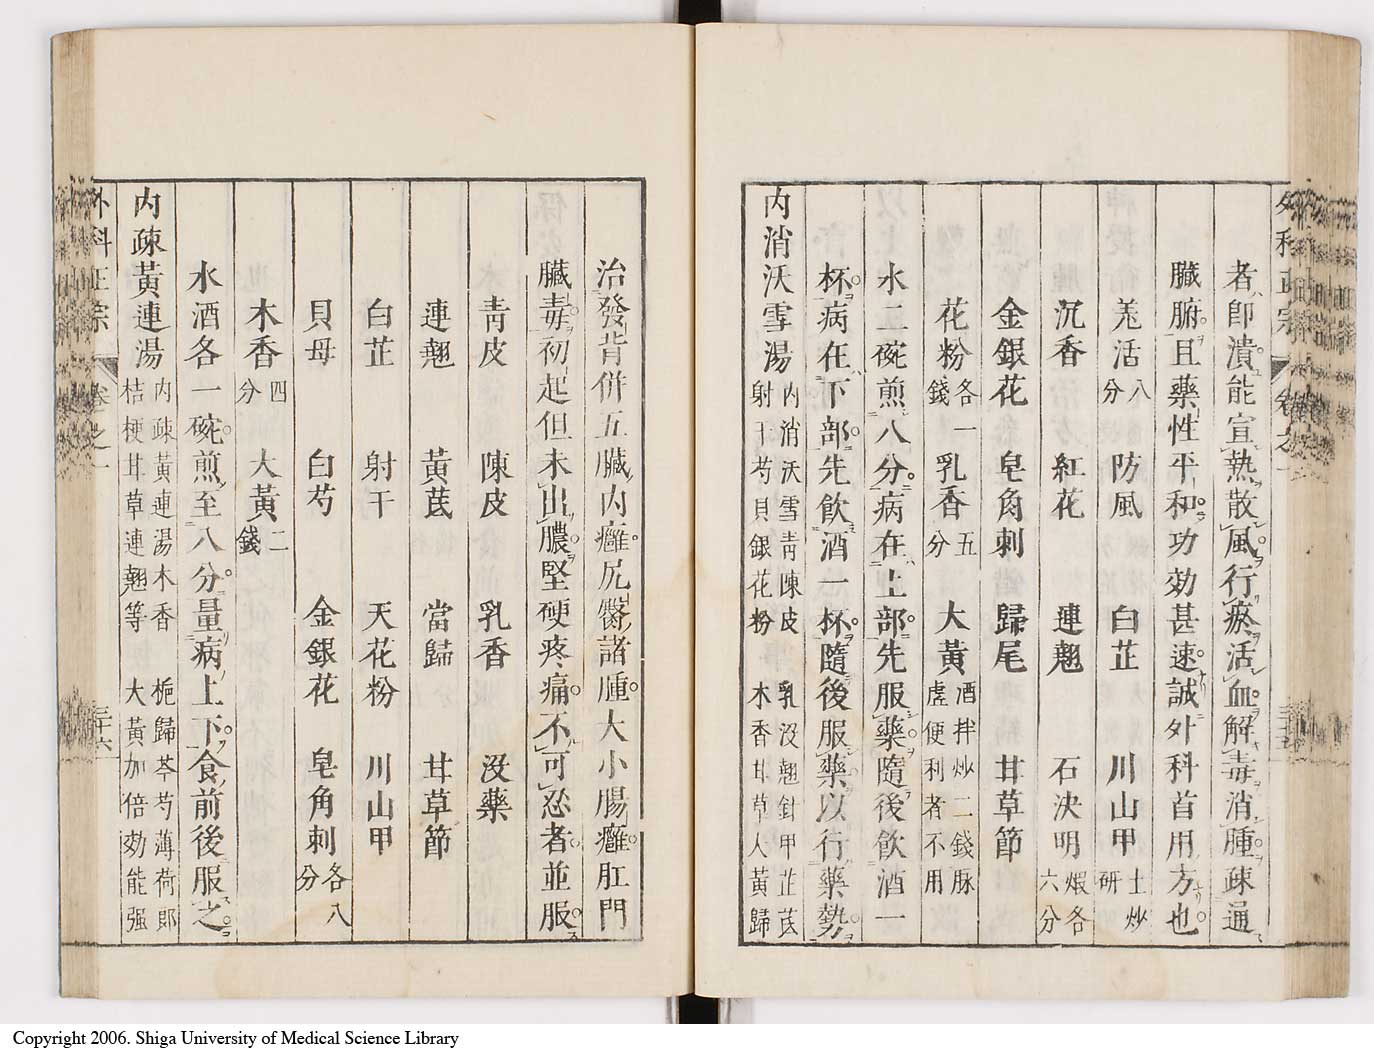 外科正宗 卷之一 三十五
者即潰能宣熱散風行瘀活血解毒消腫疎通
臟腑且藥性平和功効甚速誠外科首用方也
羗活八分 防風 白芷 川山甲土炒研
沉香 紅花 連翹 石決明煆各六分
金銀花 皂角刺 歸尾 甘草節
花粉各一錢 乳香五分 大黃酒拌炒二錢脉虗便利者不用
水二碗煎八分病在上部先服藥隨後飲酒一
杯病在下部先飲酒一杯隨後服藥以行藥勢
內消沃雪湯 內消沃雪青陳皮 乳沒翹針甲芷茋 射干芍貝銀花粉 木香甘草人黃歸
治發背併五臟內癰尻臀諸腫大小腸癰肛門
臟毒初起但未出膿堅硬疼痛不可忍者並服
青皮 陳皮 乳香 沒藥
連翹 黃茋 當歸 甘草節
白芷 射干 天花粉 川山甲
貝母 白芍 金銀花 皂角刺各八分
木香四分 大黃二錢
水酒各一碗煎至八分量病上下食前後服之
內疎黃連湯 內疎黃連湯木香 梔歸芩芍薄荷郎 桔梗甘草連翹等 大黃加倍効能强
外科正宗 卷之一 三十六
Copyright 2006. Shiga University of Medical Science Library